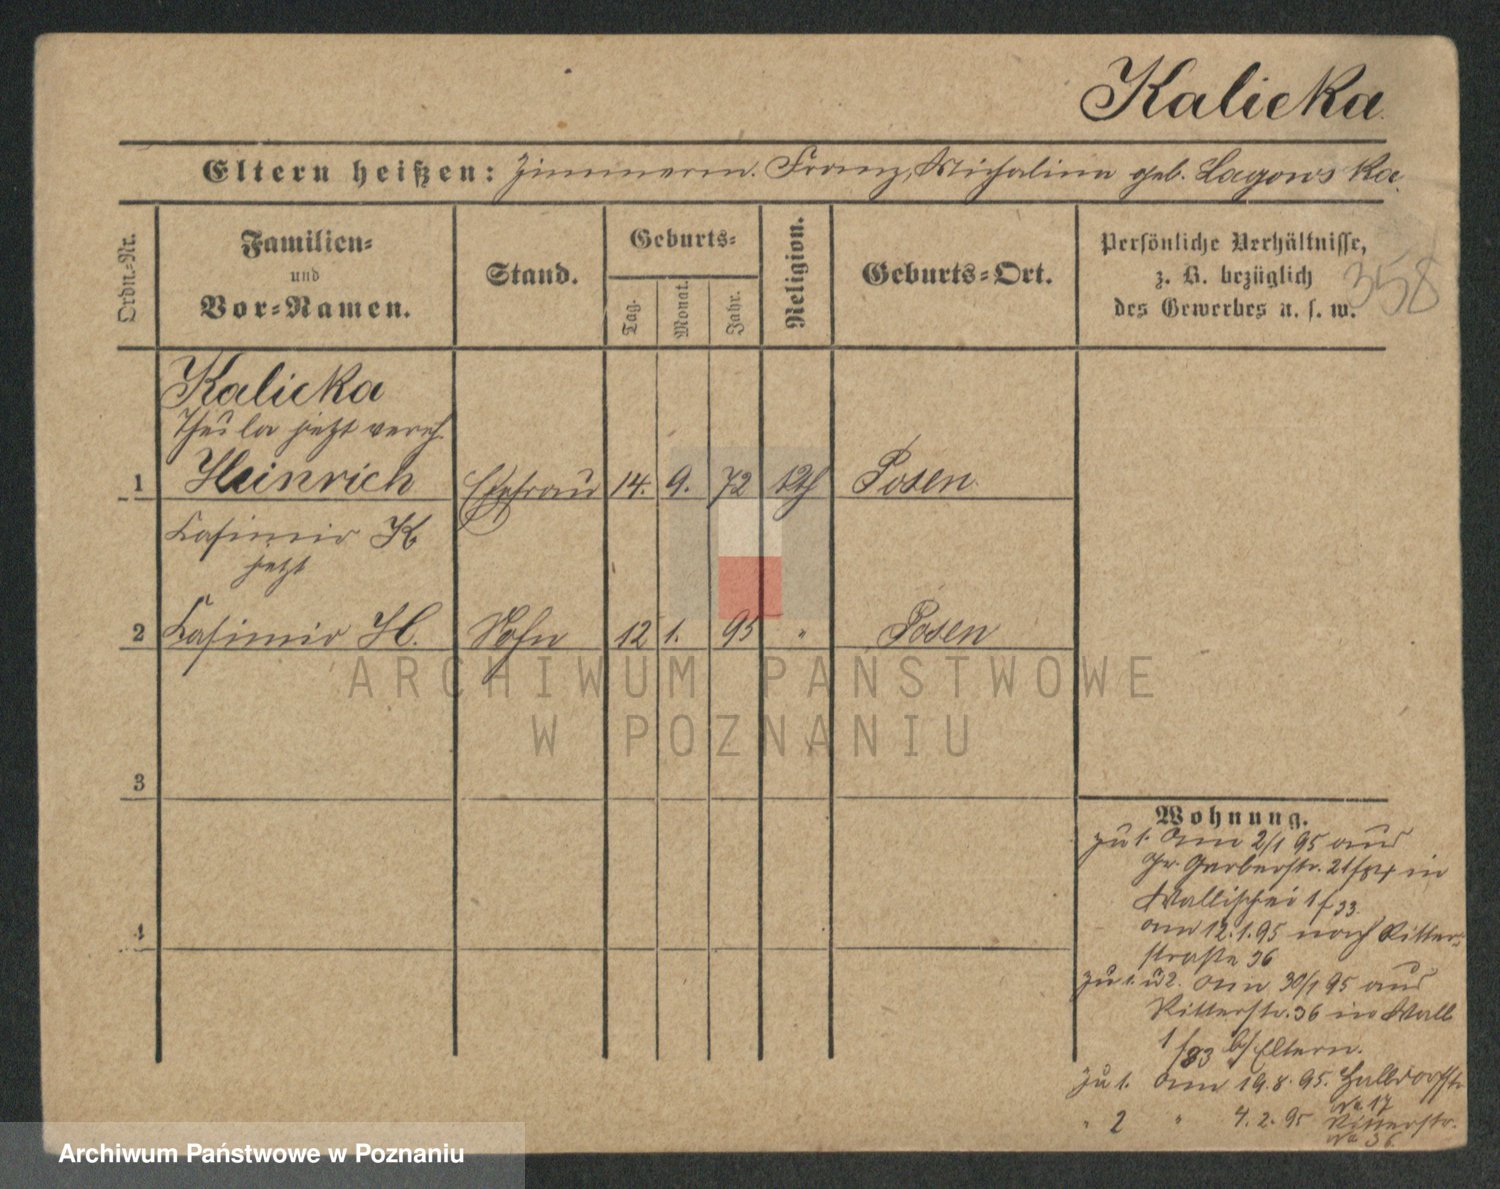 Kalicka
Eltern heißen: Zimmerm. Franz, Michalina geb. Lagowska.
Ordn.-Nr.
Familien-
und
Vor-Namen.
Stand.
Geburts-
Tag.
Monat.
Jahr.
Religion.
Geburts-Ort.
Persönliche Verhältnisse,
z. B. bezüglich
des Gewerbes u. s. w.
358
Kalicka
jetzt vereh.
1 Heinrich Ehefrau 14. 9. 72 kth Posen
Casimir K
jetzt
2 Casimir H. Sohn 12 1. 95 " Posen
3
4
Wohnung.
zu 1. am 2/1 95 aus
Gr. Gerberstr. in
Wallischei 1
am 12.1.95 nach Ritter-
straße 36
zu 1. u 2. am 30/1 95 aus
Ritterstr. 36 in Wall
b/ Eltern.
zu 1. am 19.8.95. Halbdorfstr
No. 17
" 2 " 4.2.95 Ritterstr.
No. 36
ARCHIWUM PAŃSTWOWE
W POZNANIU
Archiwum Państwowe w Poznaniu